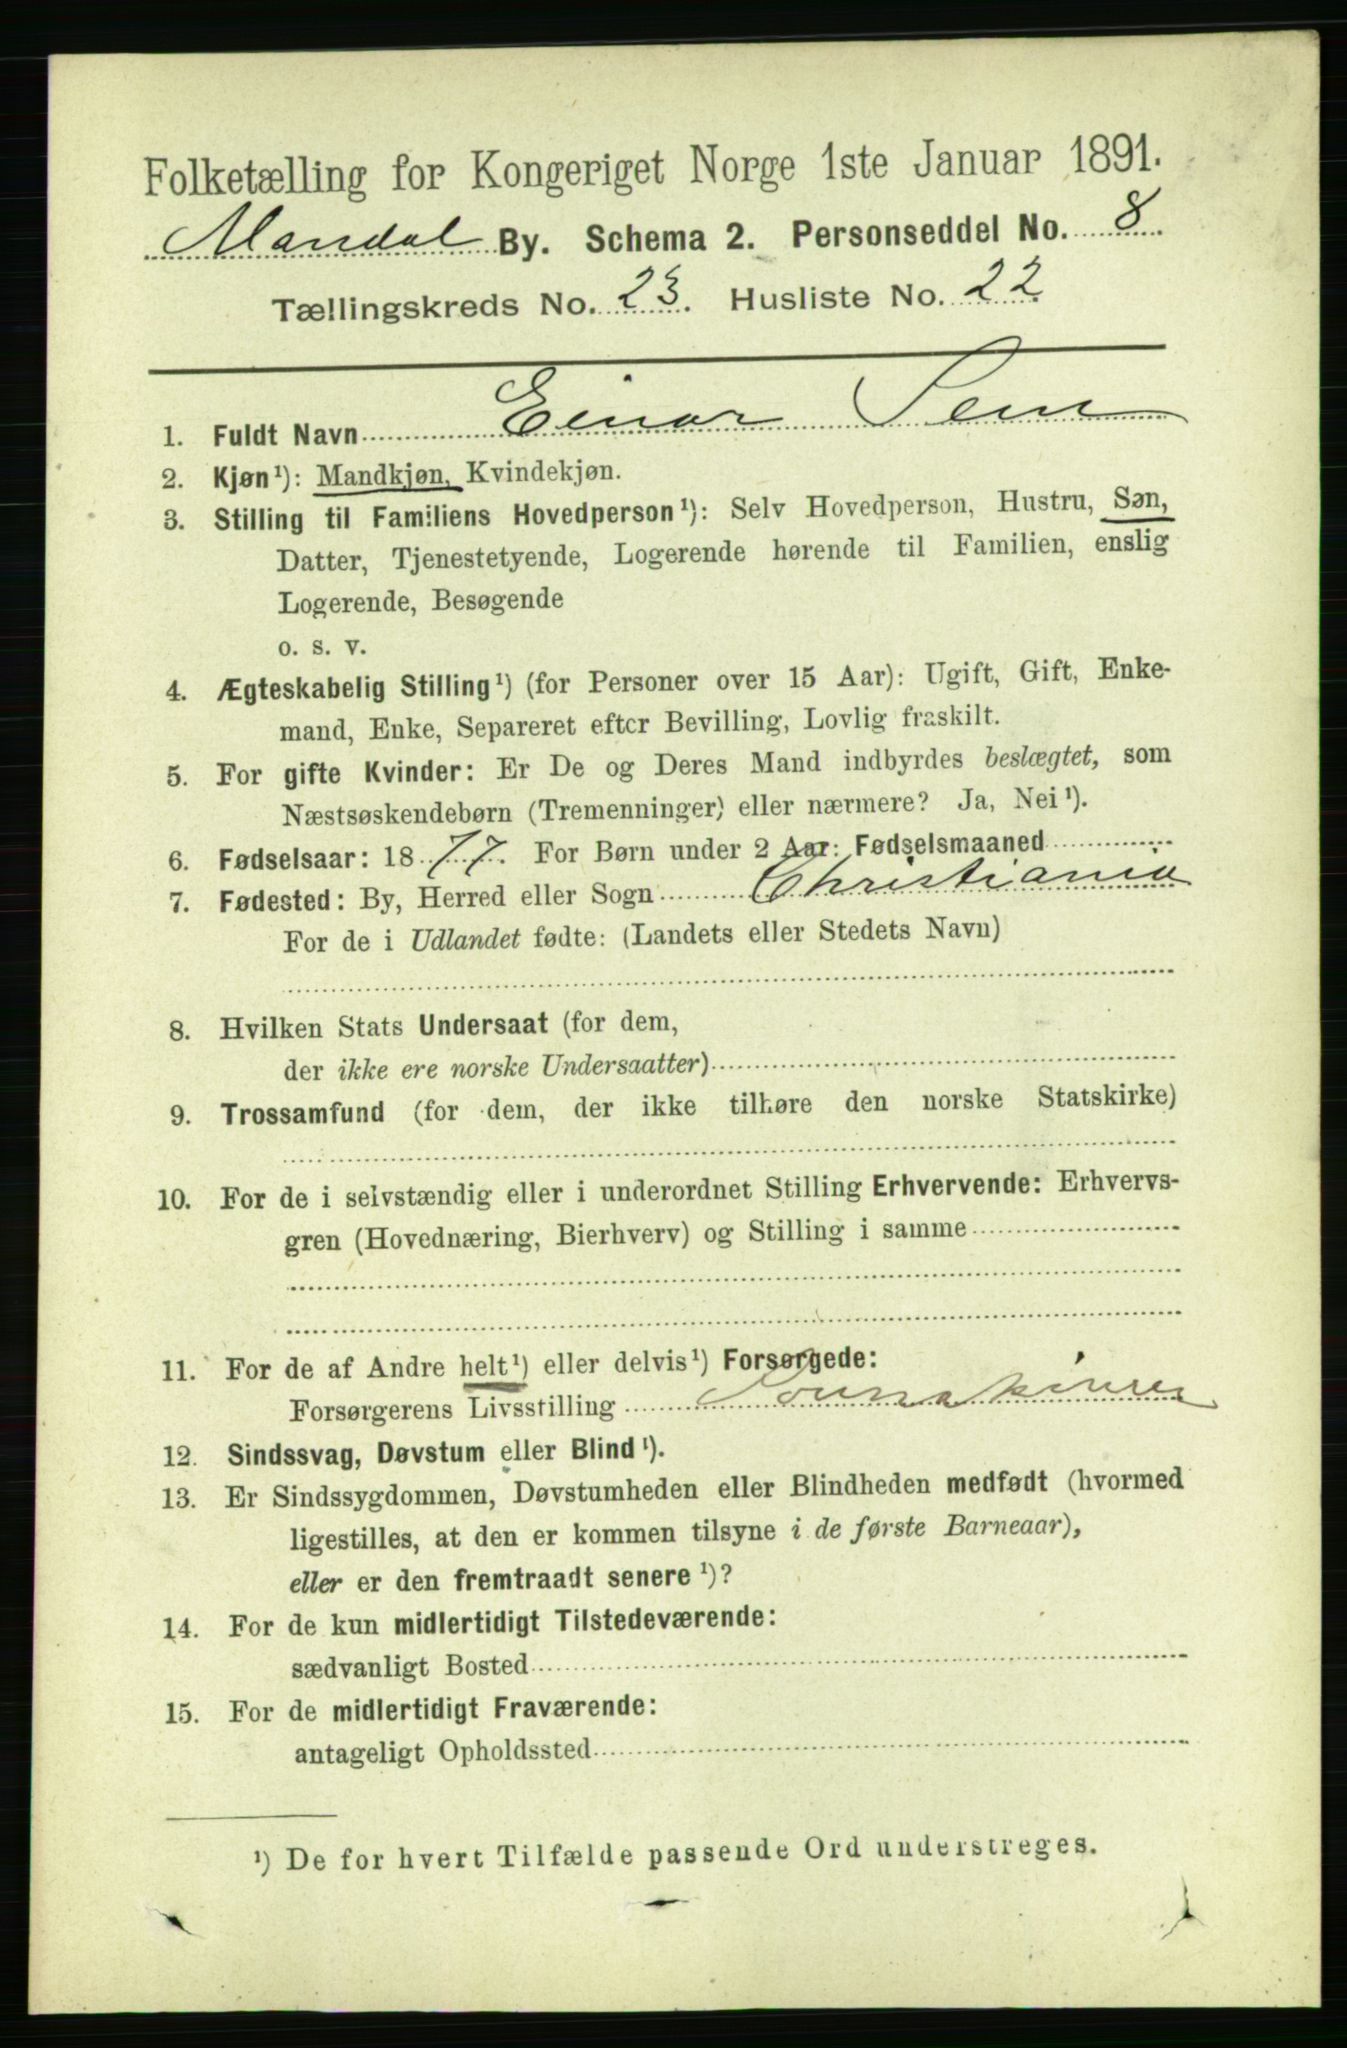 Folketælling for Kongeriget Norge 1ste Januar 1891.
Mandal By. Schema 2. Personseddel No. 8.
Tællingskreds No. 23. Husliste No. 22.
1. Fuldt Navn Einar Sem
2. Kjøn¹): Mandkjøn, Kvindekjøn.
3. Stilling til Familiens Hovedperson¹): Selv Hovedperson, Hustru, Søn,
Datter, Tjenestetyende, Logerende hørende til Familien, enslig
Logerende, Besøgende
o. s. v.
4. Ægteskabelig Stilling¹) (for Personer over 15 Aar): Ugift, Gift, Enke-
mand, Enke, Separeret efter Bevilling, Lovlig fraskilt.
5. For gifte Kvinder: Er De og Deres Mand indbyrdes beslægtet, som
Næstsøskendebørn (Tremenninger) eller nærmere? Ja, Nei¹).
6. Fødselsaar: 1877. For Børn under 2 Aar: Fødselsmaaned
7. Fødested: By, Herred eller Sogn Christiania
For de i Udlandet fødte: (Landets eller Stedets Navn)
8. Hvilken Stats Undersaat (for dem,
der ikke ere norske Undersaatter)
9. Trossamfund (for dem, der ikke tilhøre den norske Statskirke)
10. For de i selvstændig eller i underordnet Stilling Erhvervende: Erhvervs-
gren (Hovednæring, Bierhverv) og Stilling i samme
11. For de af Andre helt¹) eller delvis¹) Forsørgede:
Forsørgerens Livsstilling
12. Sindssvag, Døvstum eller Blind¹).
13. Er Sindssygdommen, Døvstumheden eller Blindheden medfødt (hvormed
ligestilles, at den er kommen tilsyne i de første Barneaar),
eller er den fremtraadt senere¹)?
14. For de kun midlertidigt Tilstedeværende:
sædvanligt Bosted
15. For de midlertidigt Fraværende:
antageligt Opholdssted
¹) De for hvert Tilfælde passende Ord understreges.